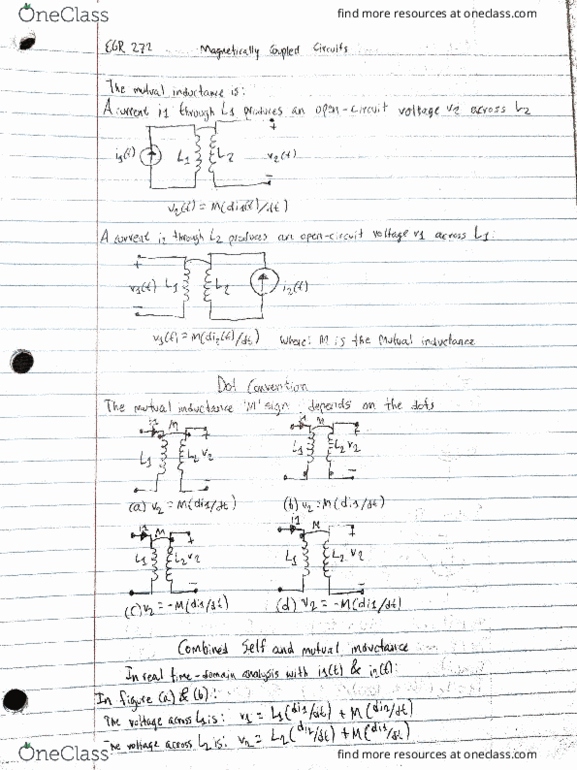 OneClass
find more resources at oneclass.com
EGR 272 Magnetically Coupled Circuits
The mutual inductance is:
A current i1 through L1 produces an open-circuit voltage v2 across L2
i1(t) L1 L2 + v2(t) −
v2(t) = M(di1(t)/dt)
A current i2 through L2 produces an open-circuit voltage v1 across L1:
+ v1(t) − L1 L2 i2(t)
v1(t) = M(di2(t)/dt) where: M is the Mutual inductance
Dot Convention
The mutual inductance 'M' sign depends on the dots
i1 M L1 L2 v2 + −
i1 M L1 L2 v2 + −
(a) v2 = M(di1/dt) (b) v2 = M(di1/dt)
i1 M L1 L2 v2 + −
i1 M L1 L2 v2 + −
(c) v2 = -M(di1/dt) (d) v2 = -M(di1/dt)
Combined Self and mutual inductance
In real time-domain analysis with i1(t) & i2(t):
In figure (a) & (b):
The voltage across L1 is: v1 = L1(di1/dt) + M(di2/dt)
The voltage across L2 is: v2 = L2(di2/dt) + M(di1/dt)
OneClass
find more resources at oneclass.com